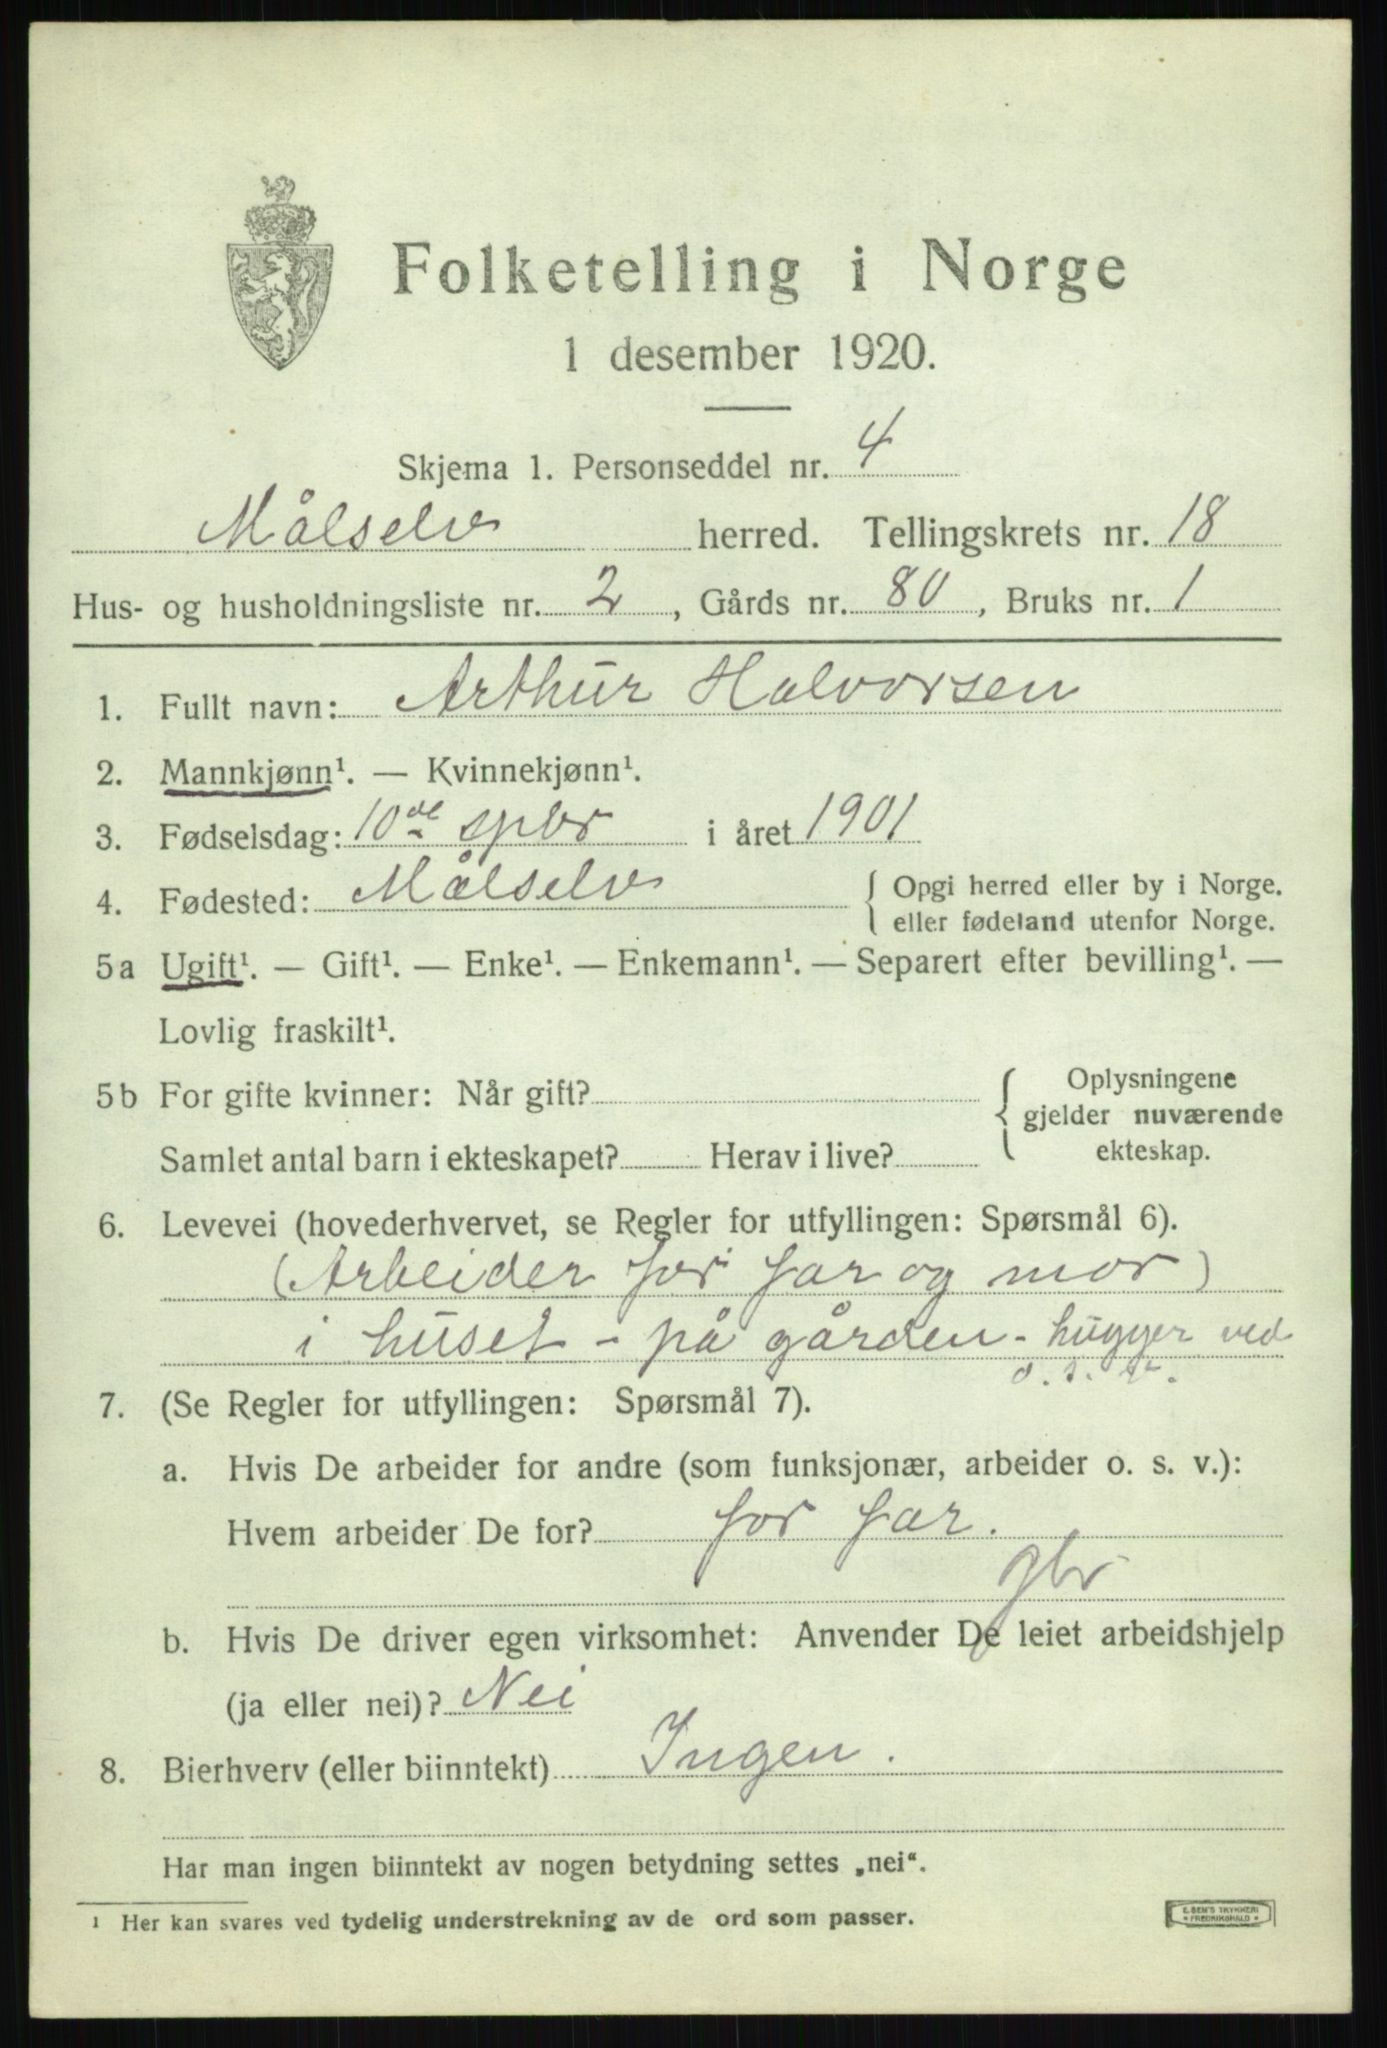 Folketelling i Norge
1 desember 1920.
Skjema 1. Personseddel nr. 4
Målselv herred. Tellingskrets nr. 18
Hus- og husholdningsliste nr. 2, Gårds nr. 80, Bruks nr. 1
1. Fullt navn: Arthur Halvorsen
2. Mannkjønn¹. — Kvinnekjønn¹.
3. Fødselsdag: 10de spbr i året 1901
4. Fødested: Målselv { Opgi herred eller by i Norge.
eller fødeland utenfor Norge.
5a Ugift¹. — Gift¹. — Enke¹. — Enkemann¹. — Separert efter bevilling¹. —
Lovlig fraskilt¹.
5b For gifte kvinner: Når gift? { Oplysningene
gjelder nuværende
Samlet antal barn i ekteskapet? Herav i live? ekteskap.
6. Levevei (hovederhvervet, se Regler for utfyllingen: Spørsmål 6).
(Arbeider for far og mor)
i huset - på gården - hugger ved
o. s. v.
7. (Se Regler for utfyllingen: Spørsmål 7).
a. Hvis De arbeider for andre (som funksjonær, arbeider o. s. v.):
Hvem arbeider De for? for far.
gbr
b. Hvis De driver egen virksomhet: Anvender De leiet arbeidshjelp
(ja eller nei)? Nei
8. Bierhverv (eller biinntekt) Ingen.
Har man ingen biinntekt av nogen betydning settes „nei“.
¹ Her kan svares ved tydelig understrekning av de ord som passer.
E. SEM'S TRYKKERI
* FREDRIKSHALD *